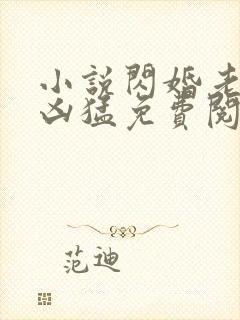 小說閃婚老
凶猛免費閱
范迪